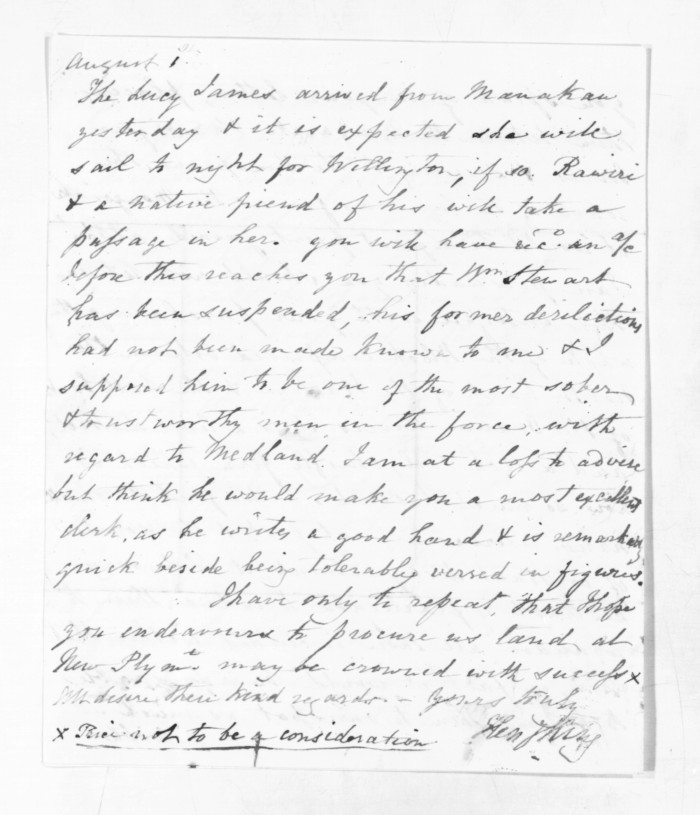 August 1st
The Lucy James arrived from Manakau
yesterday & it is expected she will
sail to night for Wellington, if so Rawiri
& a native friend of his will take a
passage in her. you will have recd. an a/c
before this reaches you that Wm Stewart
has been suspended, his former derilictions
had not been made known to me & I
supposed him to be one of the most sober
& trustworthy men in the force, with
regard to Medland. I am at a loss to advise
but think he would make you a most excellent
clerk, as he writes a good hand & is remarkably
quick beside being tolerably versed in figures.
I have only to repeat, that I hope
you endeavours to procure us land at
New Plymth. may be crowned with success x
All desire their kind regards - Yours truly
Hen King
x Price not to be a consideration